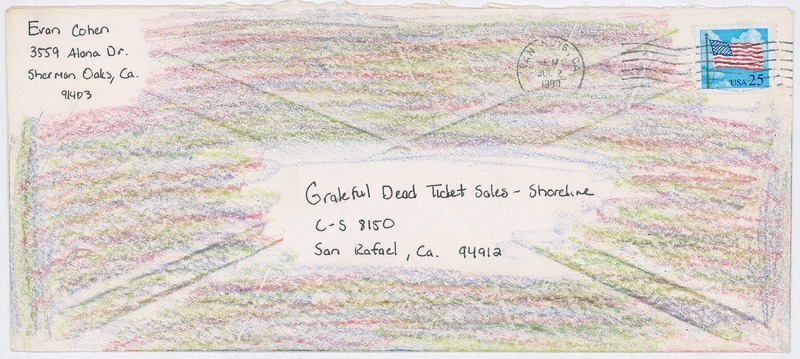 Evan Cohen
3559 Alana Dr.
Sherman Oaks, Ca.
91403
VAN NUYS, CA
PM
JUL 2
USA 25
Grateful Dead Ticket Sales - Shoreline
C-S 8150
San Rafael, Ca. 94912